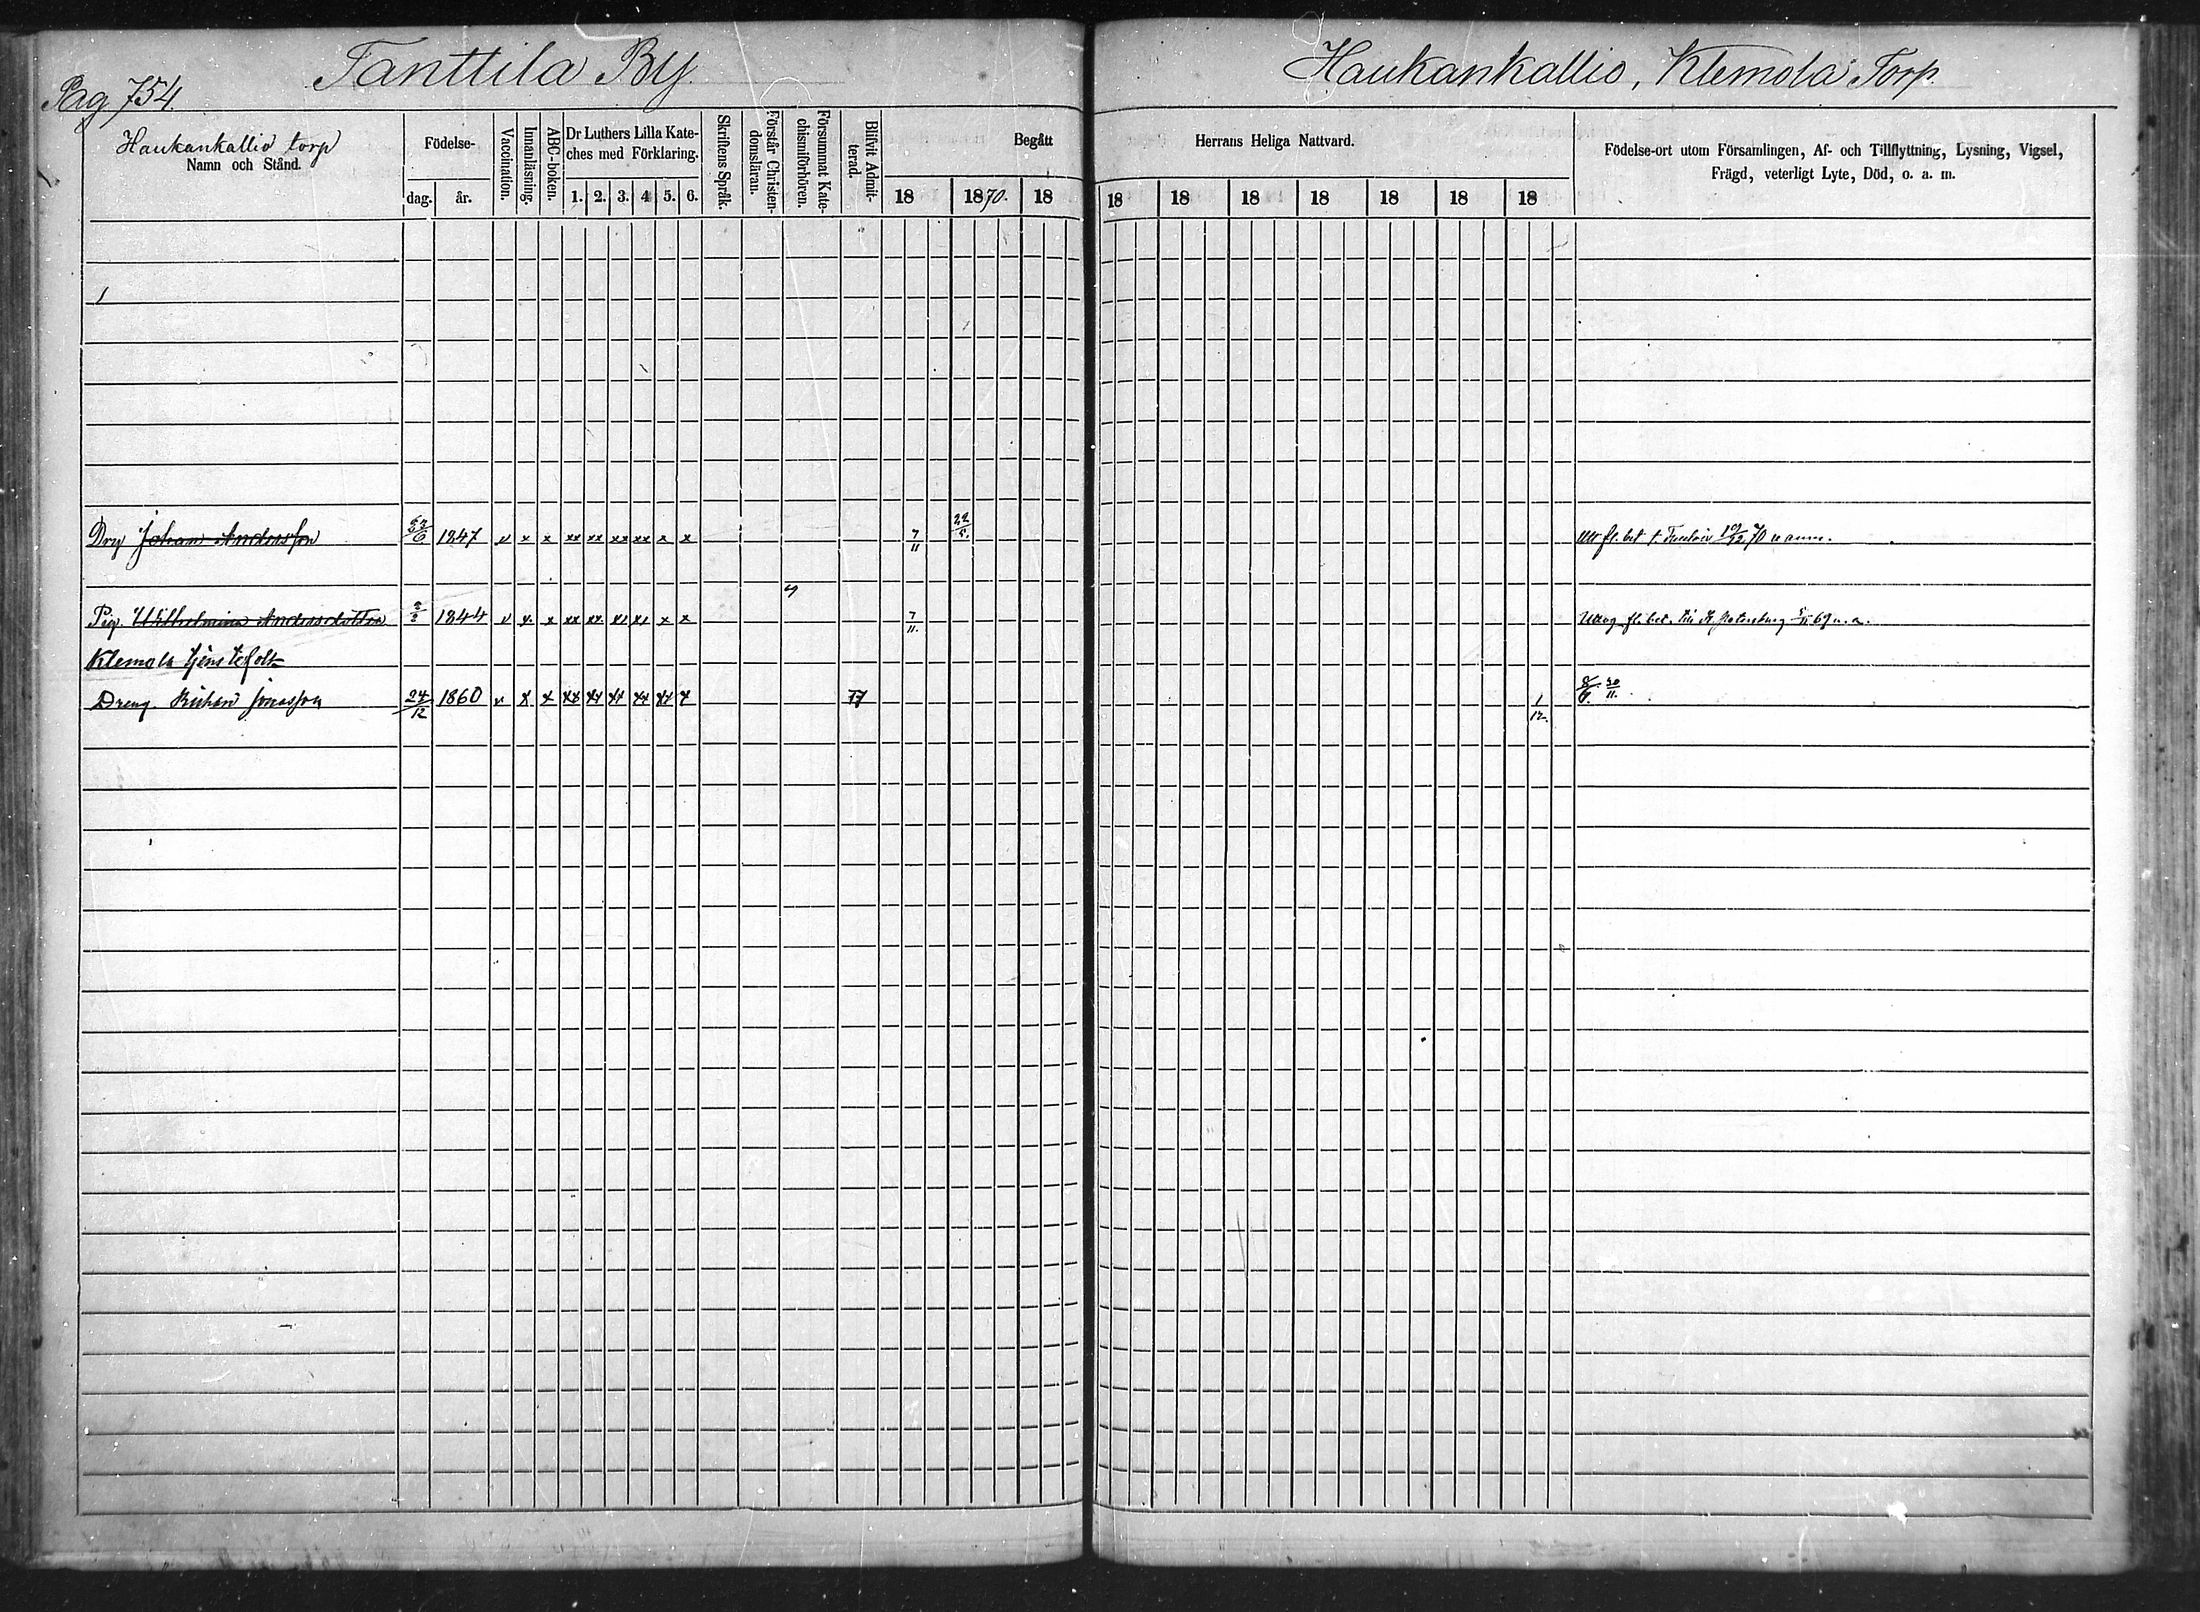 Pag 754.
Tanttila By.
Haukankallio, Klemola Torp.
Haukankallio torp
Namn och Stånd.
Födelse-
dag. år.
Vaccination.
Innanläsning.
ABC-boken.
Dr Luthers Lilla Kate-
ches med Förklaring.
1. 2. 3. 4. 5. 6.
Skriftens Språk.
Förstår Christen-
domsläran.
Försummat Kate-
chismiförhören.
Blifvit Admit-
terad.
Begått
18 1870. 18
Herrans Heliga Nattvard.
18 18 18 18 18 18 18
Födelse-ort utom Församlingen, Af- och Tillflyttning, Lysning, Vigsel,
Frägd, veterligt Lyte, Död, o. a. m.
Drg Johan Andersson 1847 v x x xx xx xx xx x x 7/11 fl. bet t. 70
Pig. Wilhelmina Andersdotter 1844 v x x xx xx xx xx x x 7/11. fl. bet. till St Petersburg 69
Klemola tjenstefolk
Dreng Johansson 24/12 1860 v x x xx xx xx xx xx x 77 1/12. 8/6. 30/11.